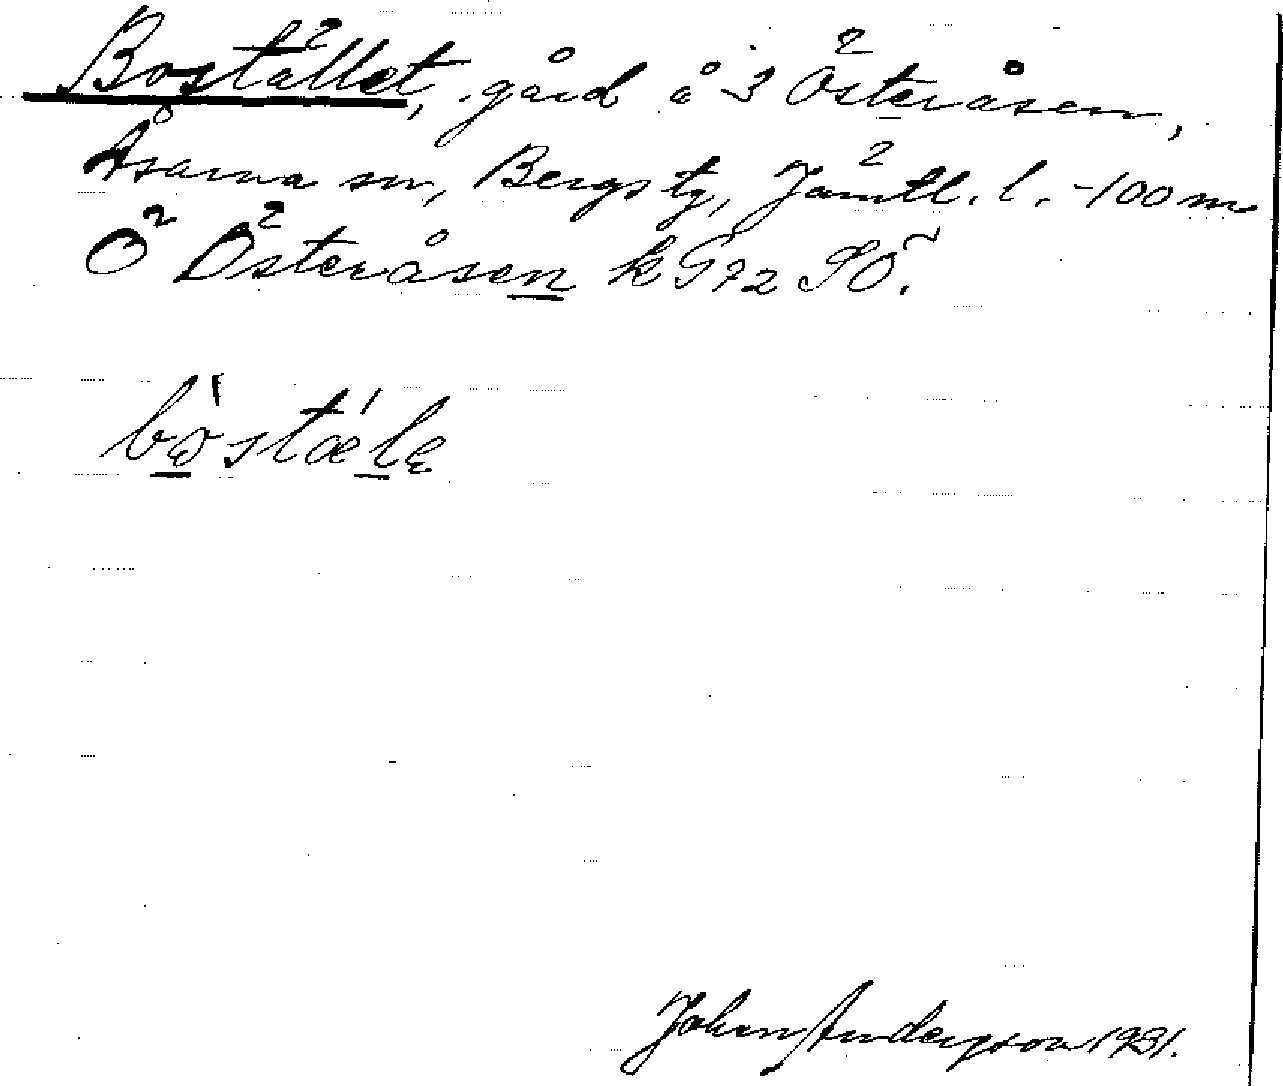 Bostället, gård å 3 Österåsen,
Åsarna sn, Bergs tg, Jämtl. l. -100 m
Ö Österåsen k 972 SÖ.
bòstæ´lę
Johan Andersson 1931.